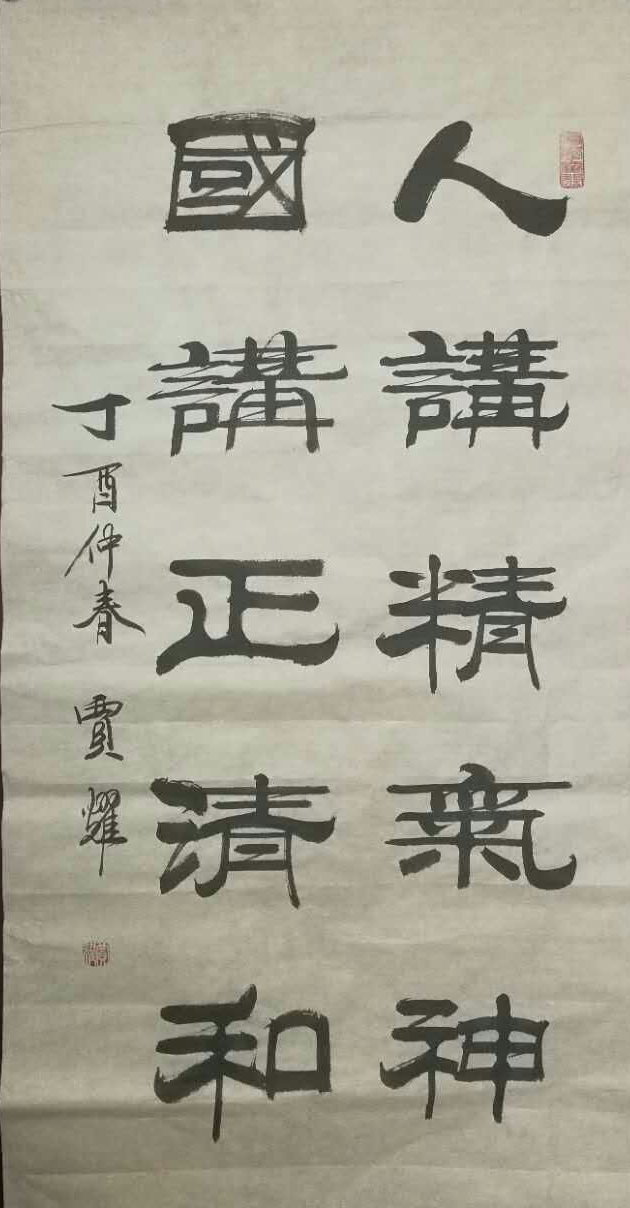 人講精氣神
國講正清和
丁酉仲春 賈耀